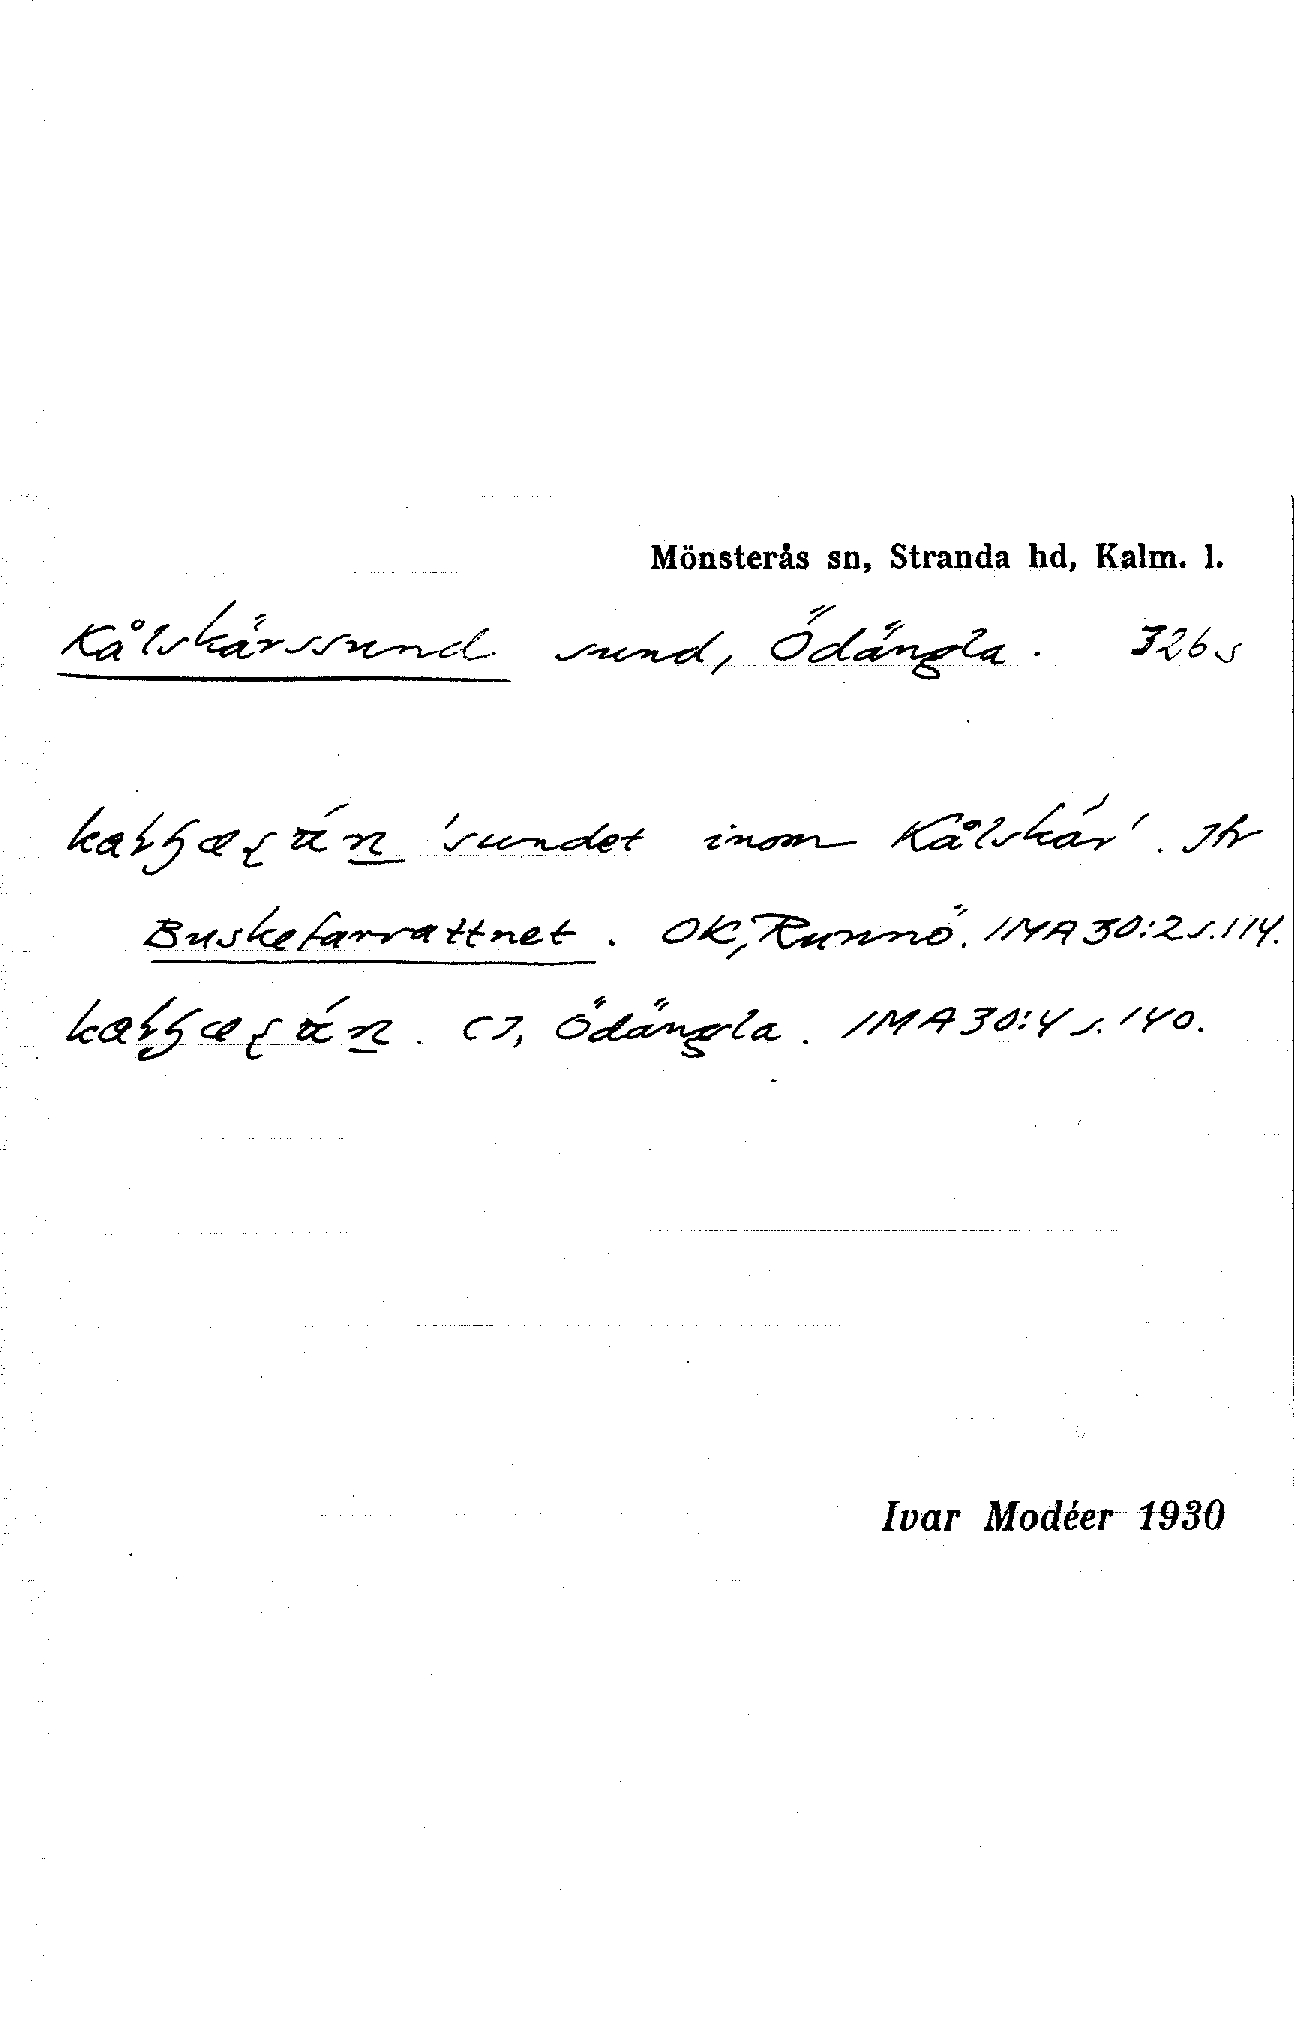 Mönsterås sn, Stranda hd, Kalm. l.
Kålskärssund sund, Ödängla. J26s
'sundet inom Kålskär'. Jfr
Buskefarrattnet. OK, Runnö. IMA 30:2 s. 114.
CJ, Ödängla. IMA 30:4 s. 140.
Ivar Modéer 1930